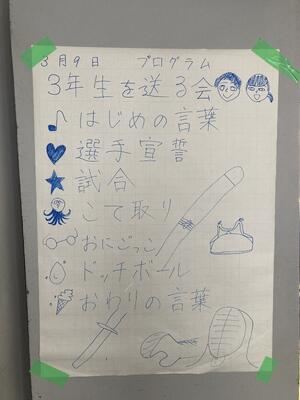 3月9日 プログラム
3年生を送る会
はじめの言葉
選手宣誓
試合
こて取り
おにごっこ
ドッチボール
おわりの言葉